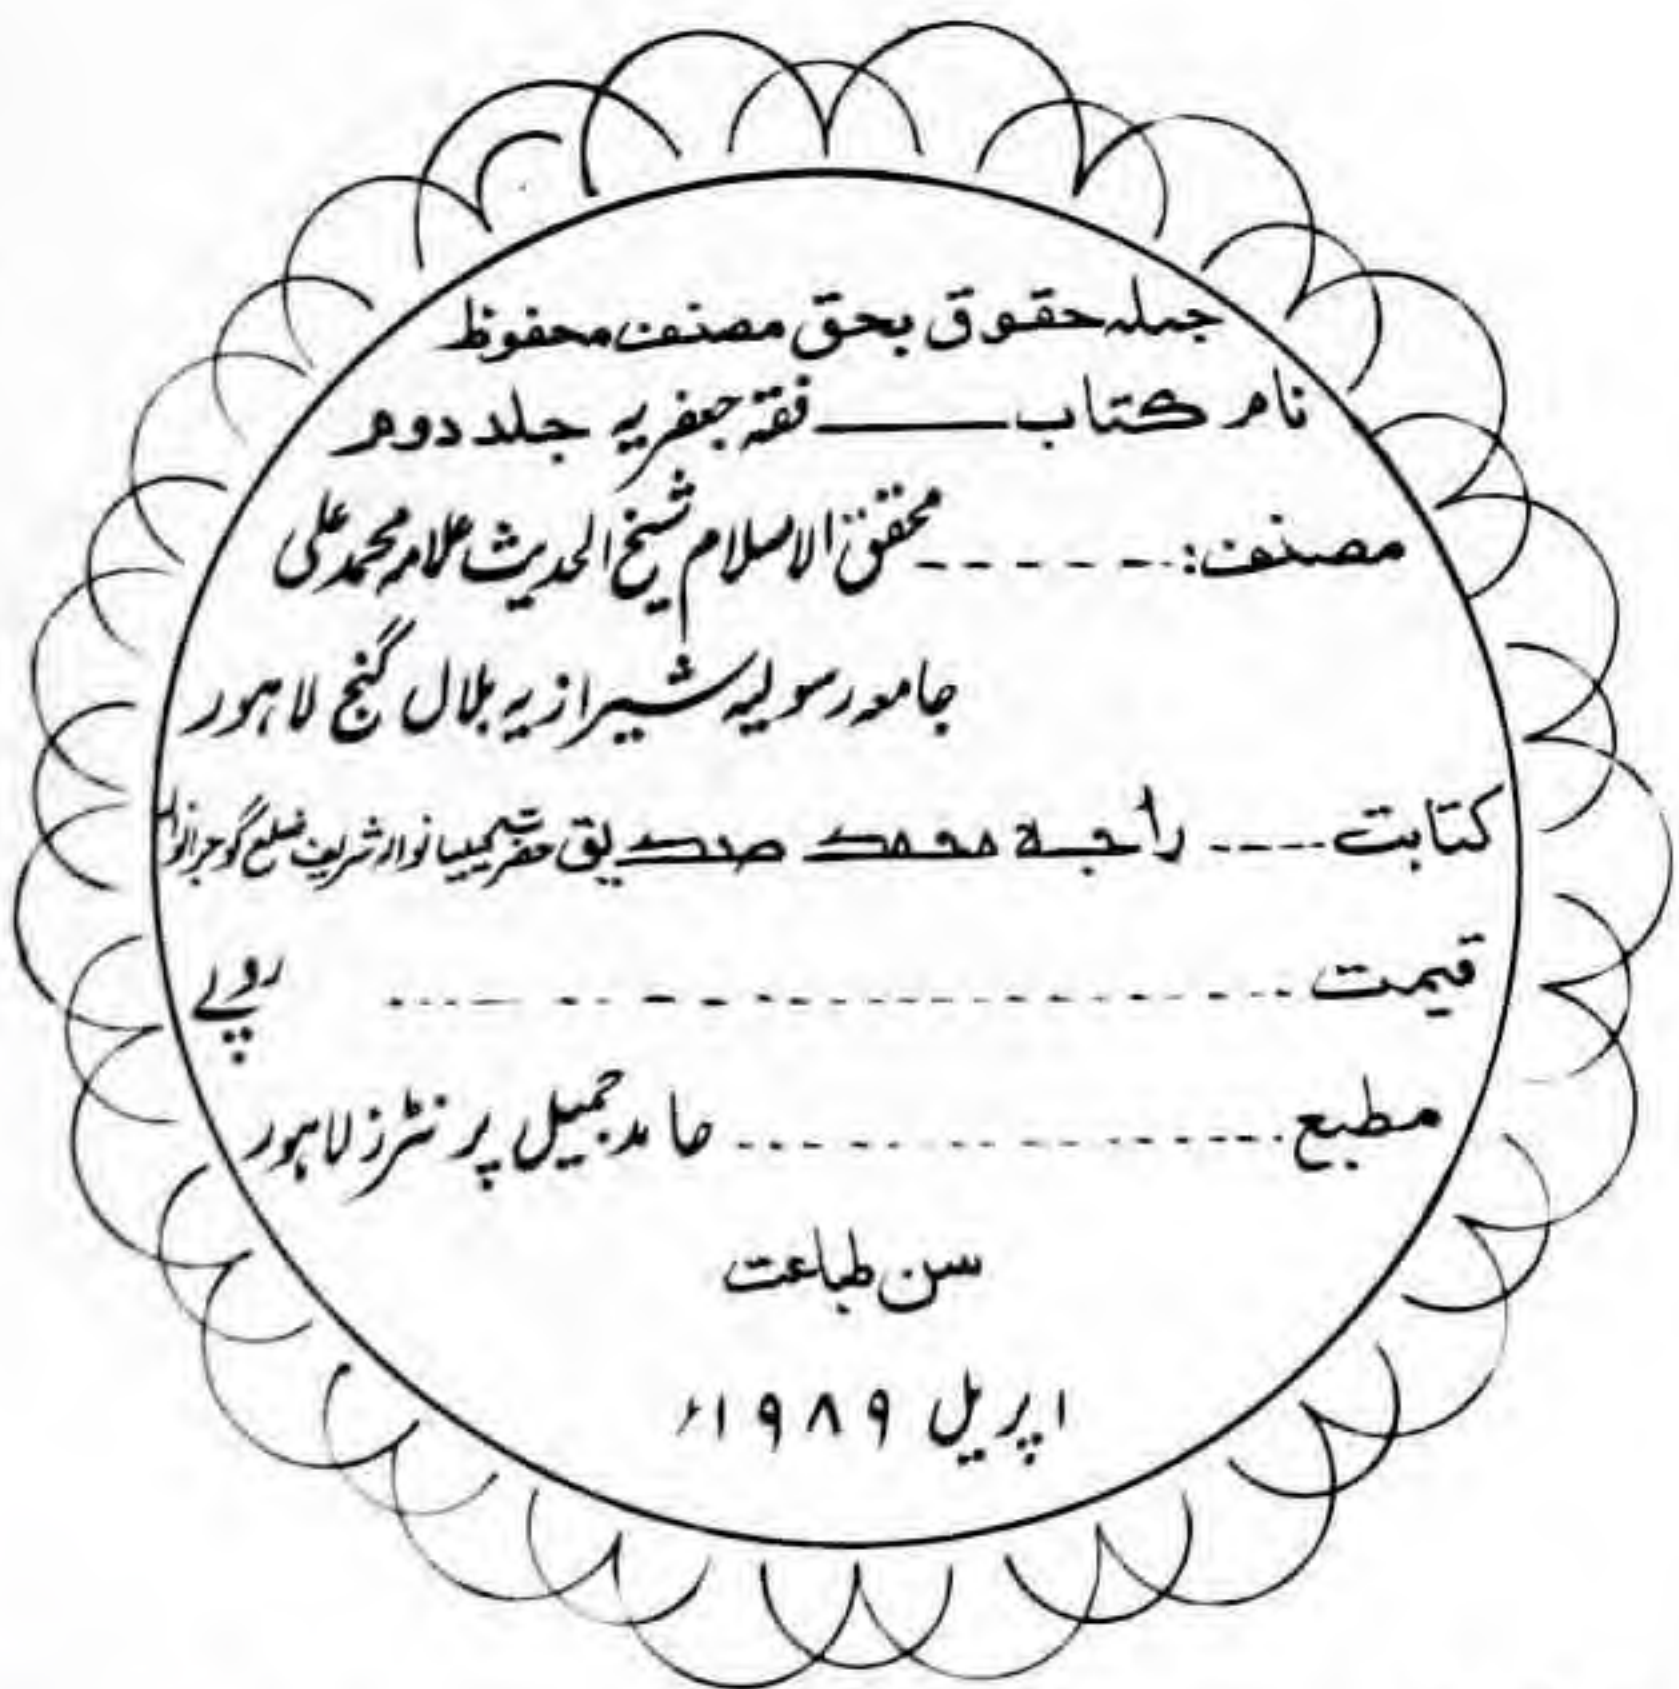 جملہ حقوق بحق مصنف محفوظ
نام کتاب ــــــ فقہ جعفریہ جلد دوم
مصنف: ------- محقق الاسلام شیخ الحدیث علامہ محمد علی
جامعہ رسولیہ شیرازیہ بلال گنج لاہور
کتابت ---- راجہ محمد صدیق حضرت کیلیانوالہ شریف ضلع گوجرانوالہ
قیمت ------------------- روپے
مطبع ------------- حامد جمیل پرنٹرز لاہور
سن طباعت
اپریل ۱۹۸۹ء